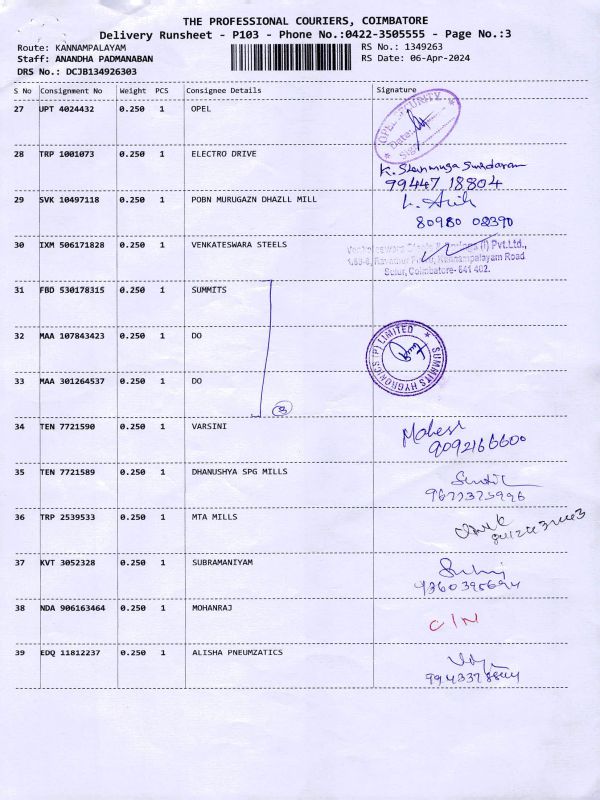 THE PROFESSIONAL COURIERS, COIMBATORE
Delivery Runsheet - P103 - Phone No.:0422-3505555 - Page No.:3
Route: KANNAMPALAYAM RS No.: 1349263
Staff: ANANDHA PADMANABAN RS Date: 06-Apr-2024
DRS No.: DCJB134926303
S No Consignment No Weight PCS Consignee Details Signature
27 UPT 4024432 0.250 1 OPEL
OPEL SECURITY
Date:
Sig
28 TRP 1001073 0.250 1 ELECTRO DRIVE
K. Shanmuga Sundaram
99447 18804
29 SVK 10497118 0.250 1 POBN MURUGAZN DHAZLL MILL
80980 02390
30 IXM 506171828 0.250 1 VENKATESWARA STEELS
Venkateswara Steels (I) Pvt.Ltd.,
Kannampalayam Road
Sulur, Coimbatore- 641 402.
31 FBD 530178315 0.250 1 SUMMITS
32 MAA 107843423 0.250 1 DO
SUMMITS HYGRONICS (P) LIMITED
33 MAA 301264537 0.250 1 DO
3
34 TEN 7721590 0.250 1 VARSINI
Mahesh
9092166600
35 TEN 7721589 0.250 1 DHANUSHYA SPG MILLS
36 TRP 2539533 0.250 1 MTA MILLS
37 KVT 3052328 0.250 1 SUBRAMANIYAM
38 NDA 906163464 0.250 1 MOHANRAJ
C/N
39 EDQ 11812237 0.250 1 ALISHA PNEUMZATICS